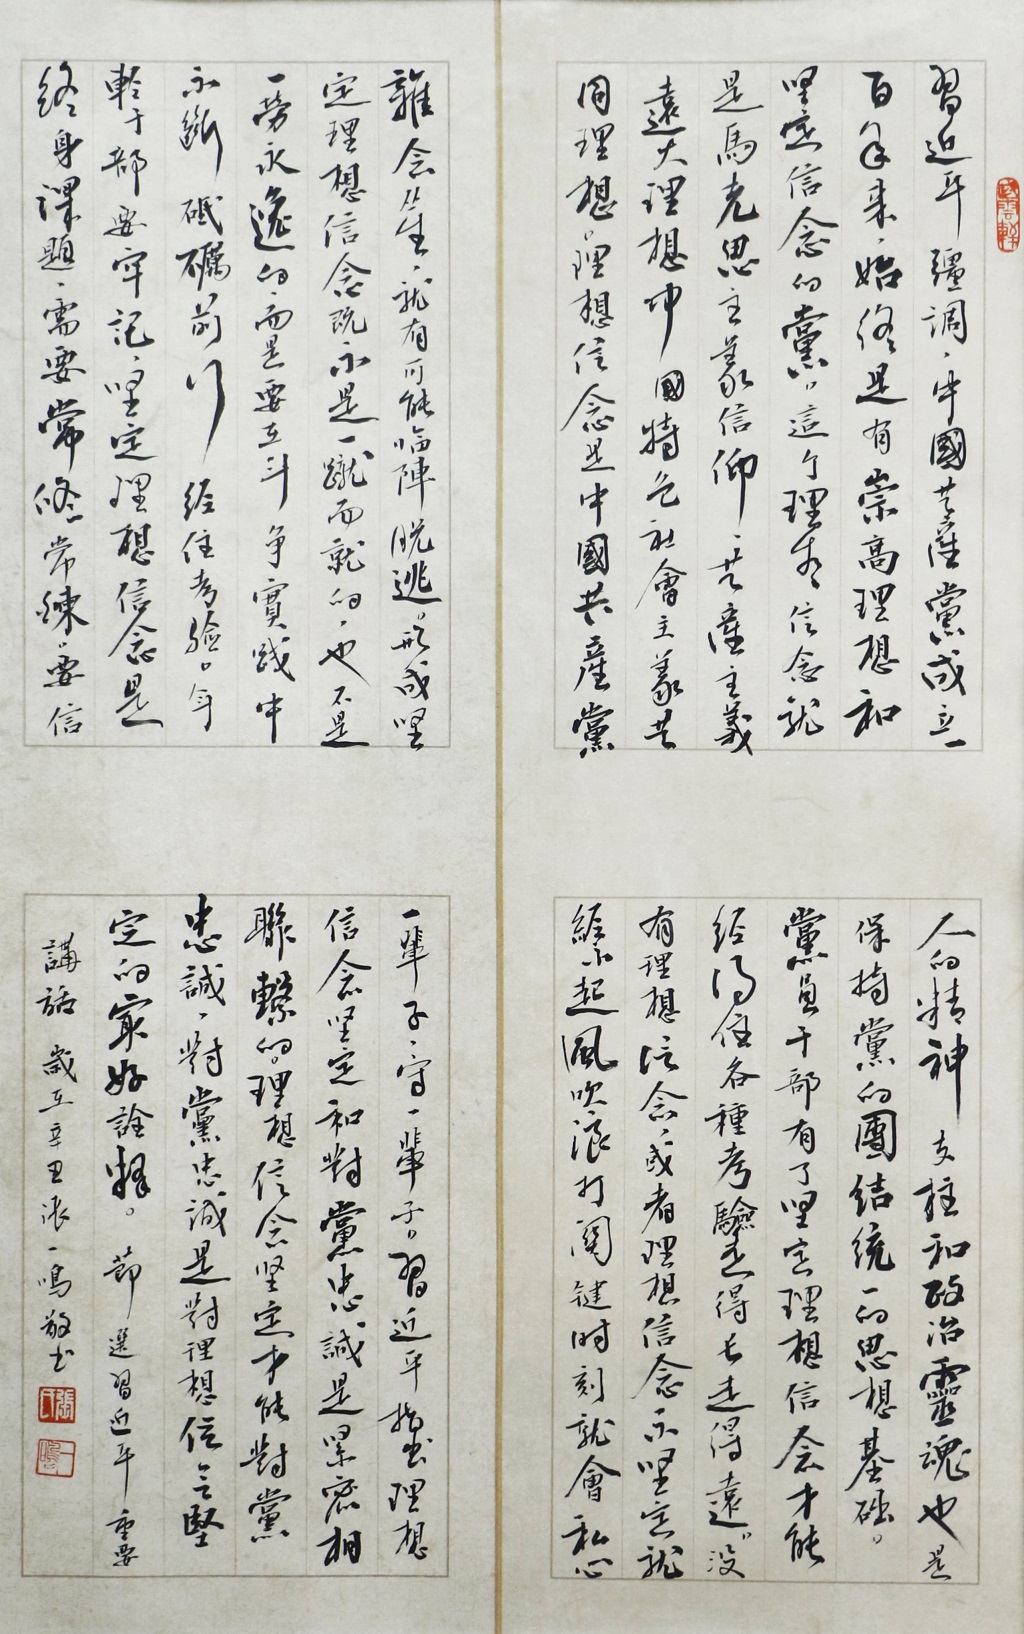 習近平疆調，中國共產黨成立一
百年来，始终是有崇高理想和
坚定信念的黨。這个理想信念就
是馬克思主義信仰、共產主義
遠大理想中國特色社會主義共
同理想。理想信念是中國共產黨
人的精神支柱和政治靈魂也是
保持黨的團结统一的思想基础。
黨員干部有了坚定理想信念才能
经得住各種考驗走得长走得遠。没
有理想信念，或者理想信念不坚定就
經不起風吹浪打関键时刻就會私心
雜念丛生，就有可能临陣脱逃。形成坚
定理想信念既不是一蹴而就的，也不是
一劳永逸的，而是要在斗争實践中
不断砥礪前行经住考验。年
轻干部要牢記，坚定理想信念是
终身課题，需要常修常練，要信
一辈子，守一辈子。習近平指出理想
信念坚定和對黨忠誠是紧密相
聯繫的。理想信念坚定才能對黨
忠誠，對黨忠誠是對理想信念堅
定的最好詮释。節選習近平重要
講話歲在辛丑张一鳴敬书